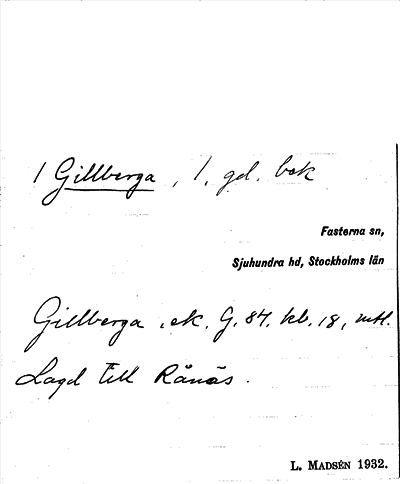 1 Gillberga, 1, gd. bok
Fasterna sn,
Sjuhundra hd, Stockholms län
Gillberga, ek. G. 87. kb. 18, mtl.
Lagd till Rånäs.
L. MADSÉN 1932.